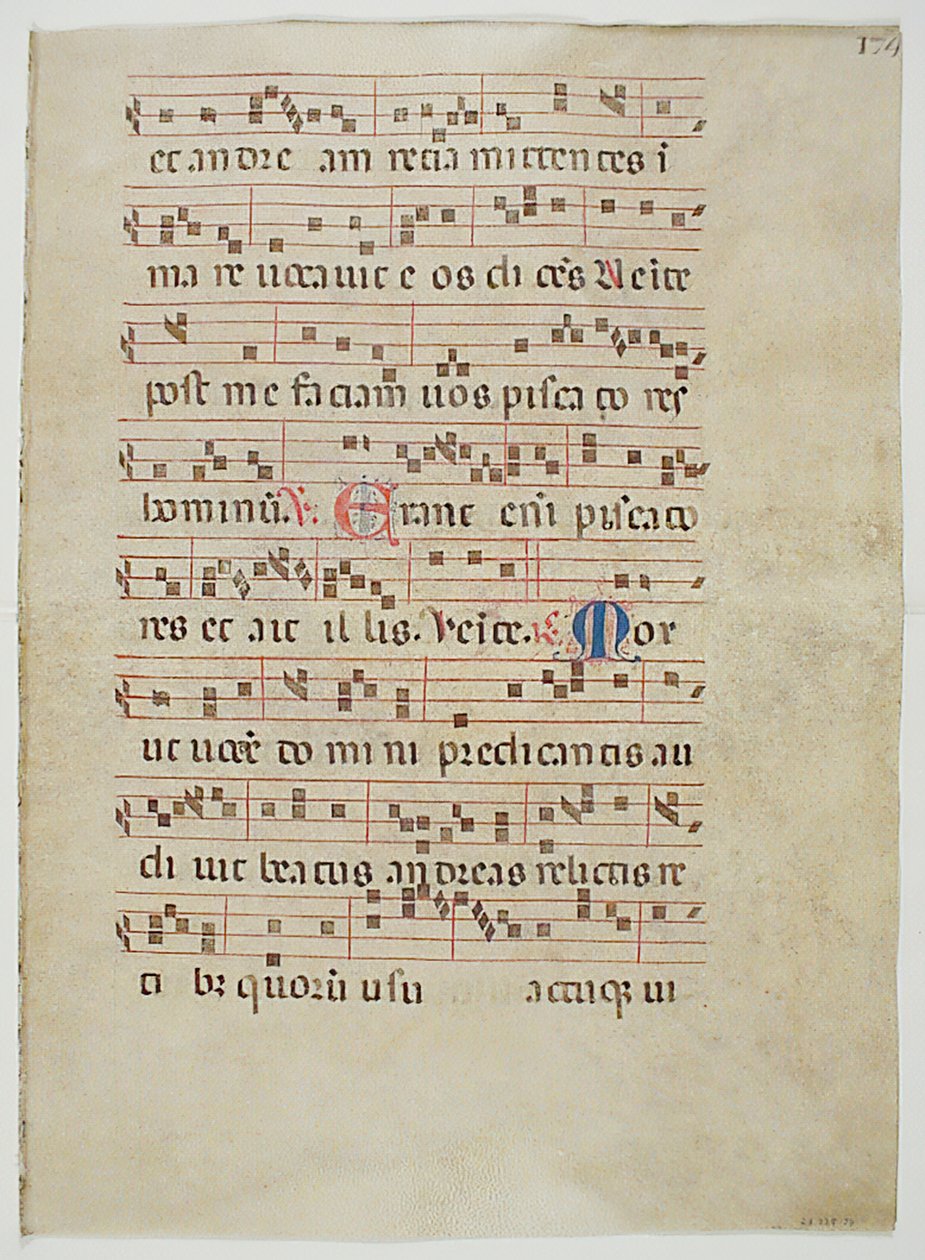 174
et andre am recia mittentes i
ma re uocauit e os di cēs Ueite
post me fa ciam uos pisca to res
hominū. V. Erant eni pisca to
res et ait il lis. Veite. R. Mor
ut uocē do mi ni predicantis au
di uit beatus andreas relictis re
ti bꝫ quorū usu actuqꝫ ui